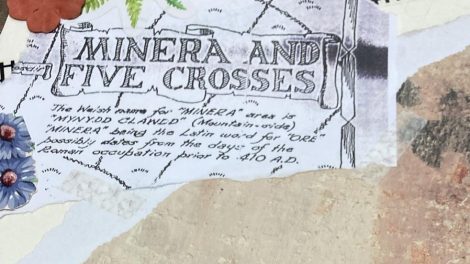 MINERA AND
FIVE CROSSES
The Welsh name for "MINERA" area is
"MYNYDD CLAWED" (Mountain-side)
"MINERA" being the Latin word for "ORE"
possibly dates from the days of the
Roman occupation prior to 410 A.D.